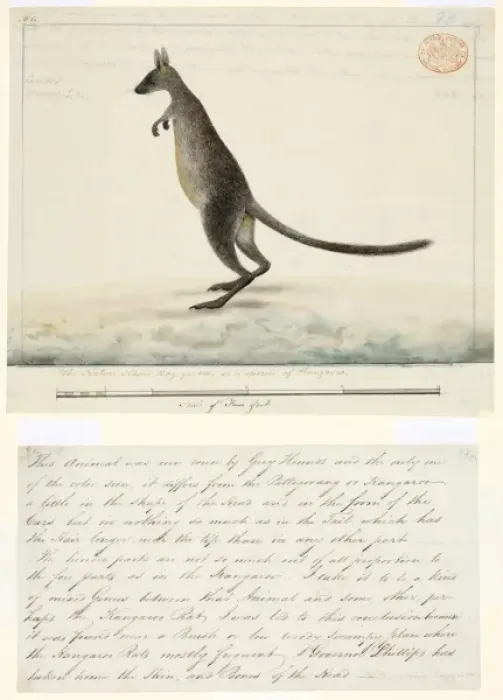 73
The Native Name Bag-garree, as a species of Kangaroo.
Scale of Three feet
This Animal was run down by Grey Hounds and the only one
of the color seen, it differs from the Pattegorang or Kangaroo
a little in the shape of the Head and in the form of the
Ears, but in nothing so much as in the Tail, which has
the Hair longer near the tip than in any other part
The hinder parts are not so much out of all proportion to
the fore parts as in the Kangaroo. I take it to be a kind
of mixed Genus between that Animal and some other per
haps the Kangaroo Rat, I was led to this conclusion because
it was found near a Brush or low woody swampy place where
the Kangaroo Rats mostly frequent, Governor Phillips has
taken home the Skin, and Bones of the Head